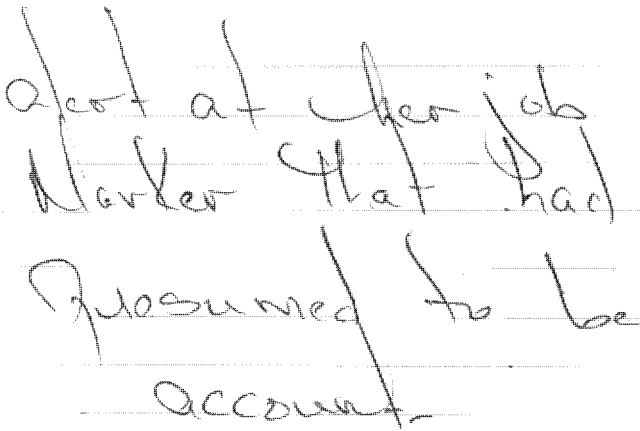 alert at her job
Marker that had
presumed to be
account.